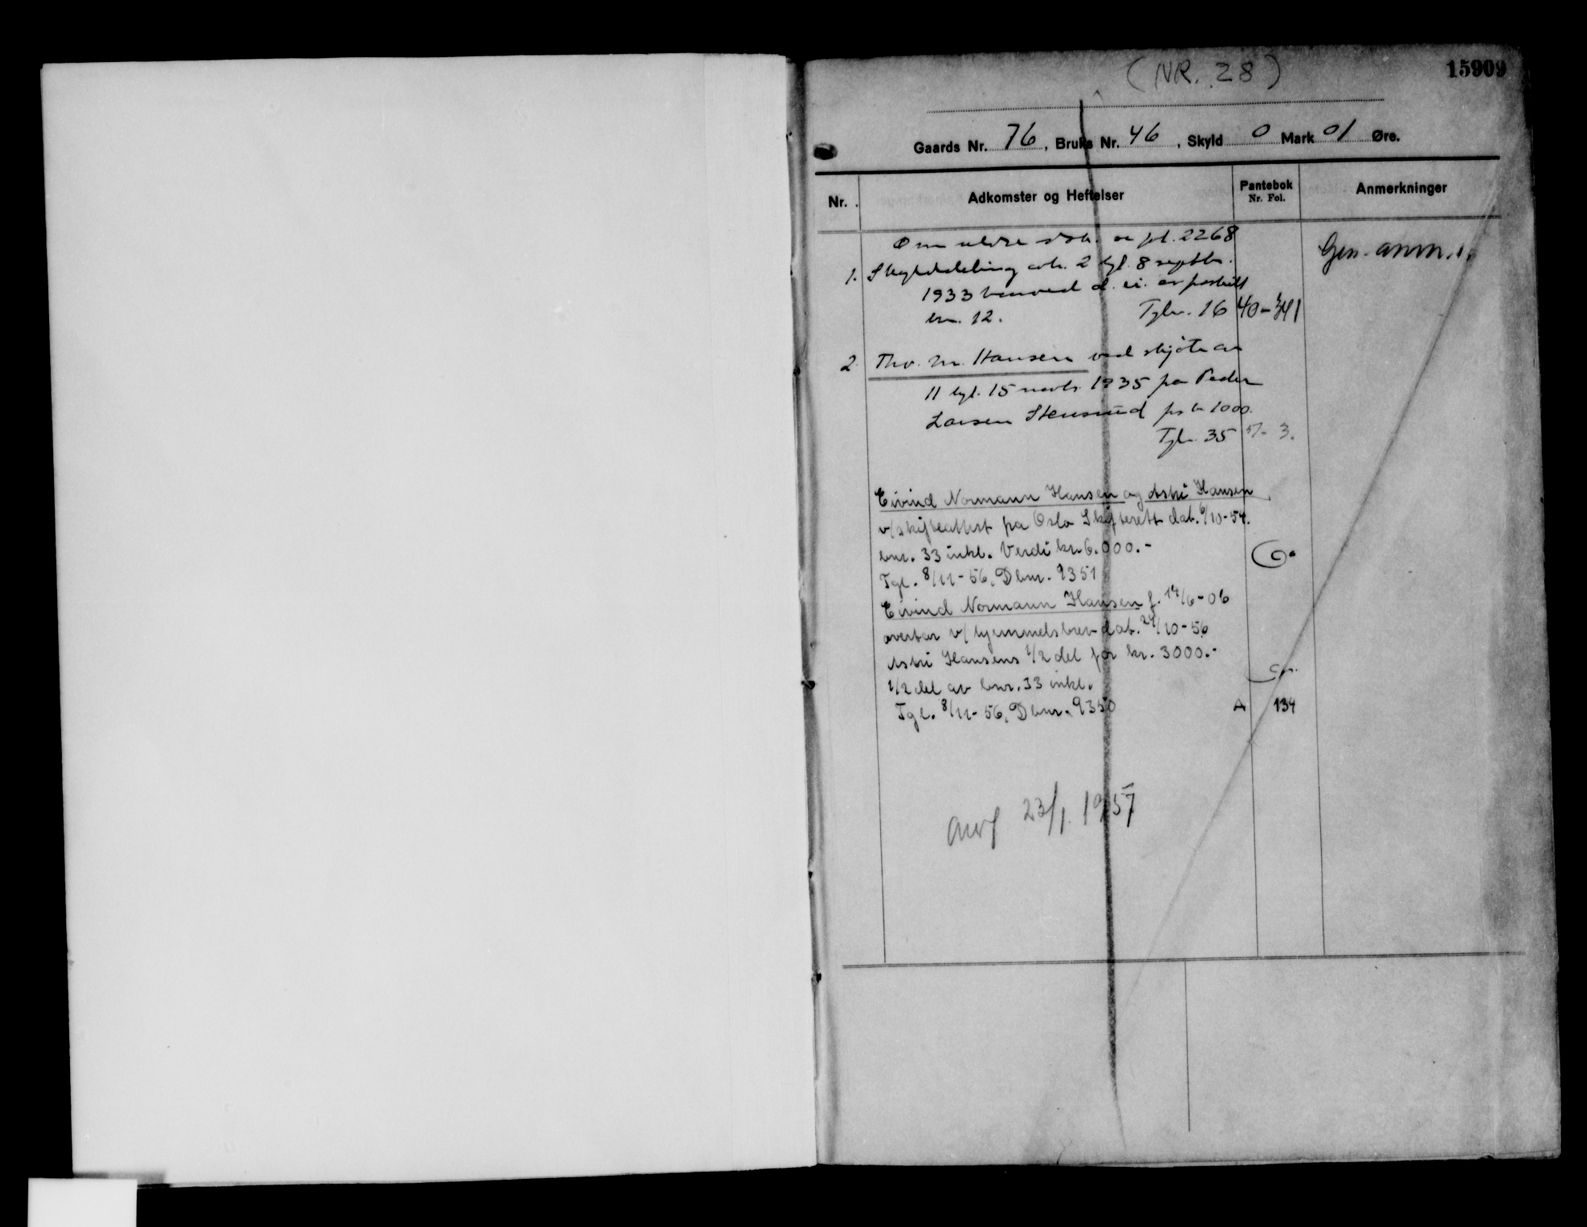 (NR. 28)
15909
Gaards Nr. 76, Bruks Nr. 46, Skyld 0 Mark 01 Øre.
Nr. Adkomster og Heftelser Pantebok Nr. Fol. Anmerkninger
Om eldre dok. se fol. 2268 Gen. anm. 1.
1. Skylddeling avh. 2 tgl. 8 septbr.
1933 hvorved d. ei. er fraskilt
bnr. 12. Tgbr. 16 40-341
2. Thv. M. Hansen ved skjøte av
11 tgl. 15 1935 fra Peder
Larsen Stensrud for kr 1000.
Tgb. 35 3.
Eivind Normann Hansen og Astri Hansen
v/skifteattest fra Oslo Skifterett dat. 6/10-54.
bnr. 33 inkl. Verdi kr. 6.000.-
Tgl. 8/11-56. Dbnr. 9351
Eivind Normann Hansen f. 14/6-06
overtar v/hjemmelsbrev dat. 24/10-56
Astri Hansens 1/2 del for kr. 3000.-
1/2 del av bnr. 33 inkl.
Tgl. 8/11-56. Dbnr. 9350 A 134
23/1. 1957